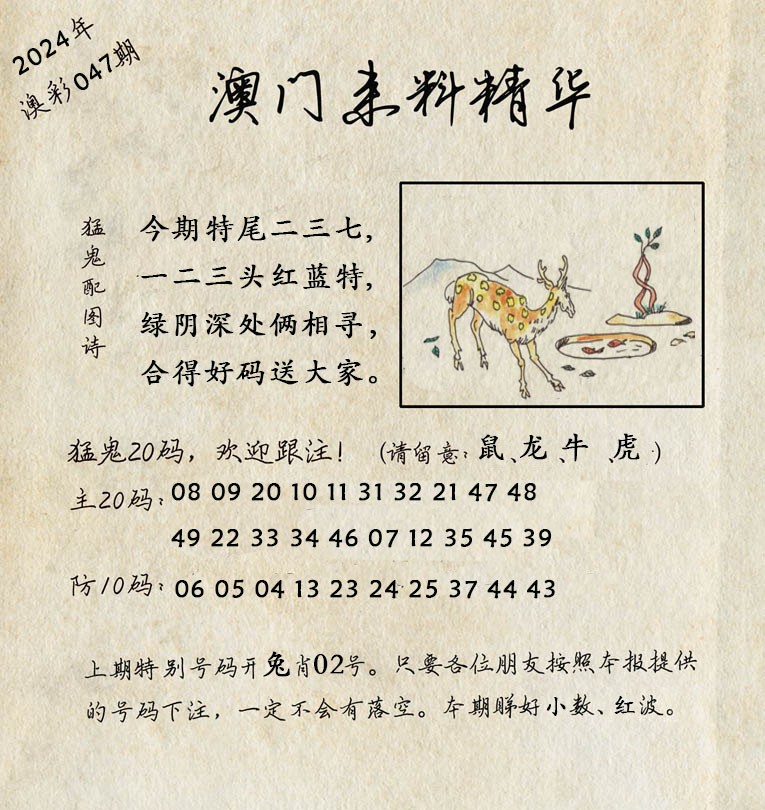 2024年
澳彩047期
澳门来料精华
猛鬼配图诗
今期特尾二三七，
一二三头红蓝特，
绿阴深处俩相寻，
合得好码送大家。
猛鬼20码，欢迎跟注！（请留意：鼠、龙、牛、虎）
主20码：08 09 20 10 11 31 32 21 47 48
49 22 33 34 46 07 12 35 45 39
防10码：06 05 04 13 23 24 25 37 44 43
上期特别号码开兔肖02号。只要各位朋友按照本报提供
的号码下注，一定不会有落空。本期睇好小数、红波。